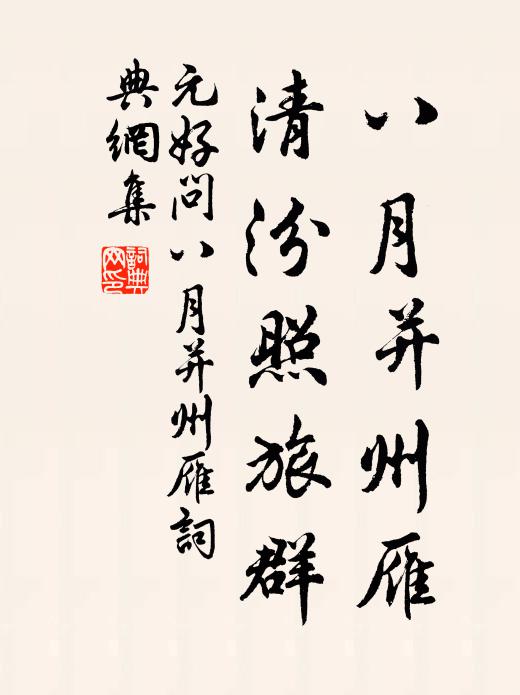 八月并州雁
清汾照旅群
元好問八月并州雁詞
典網集
詞典网印